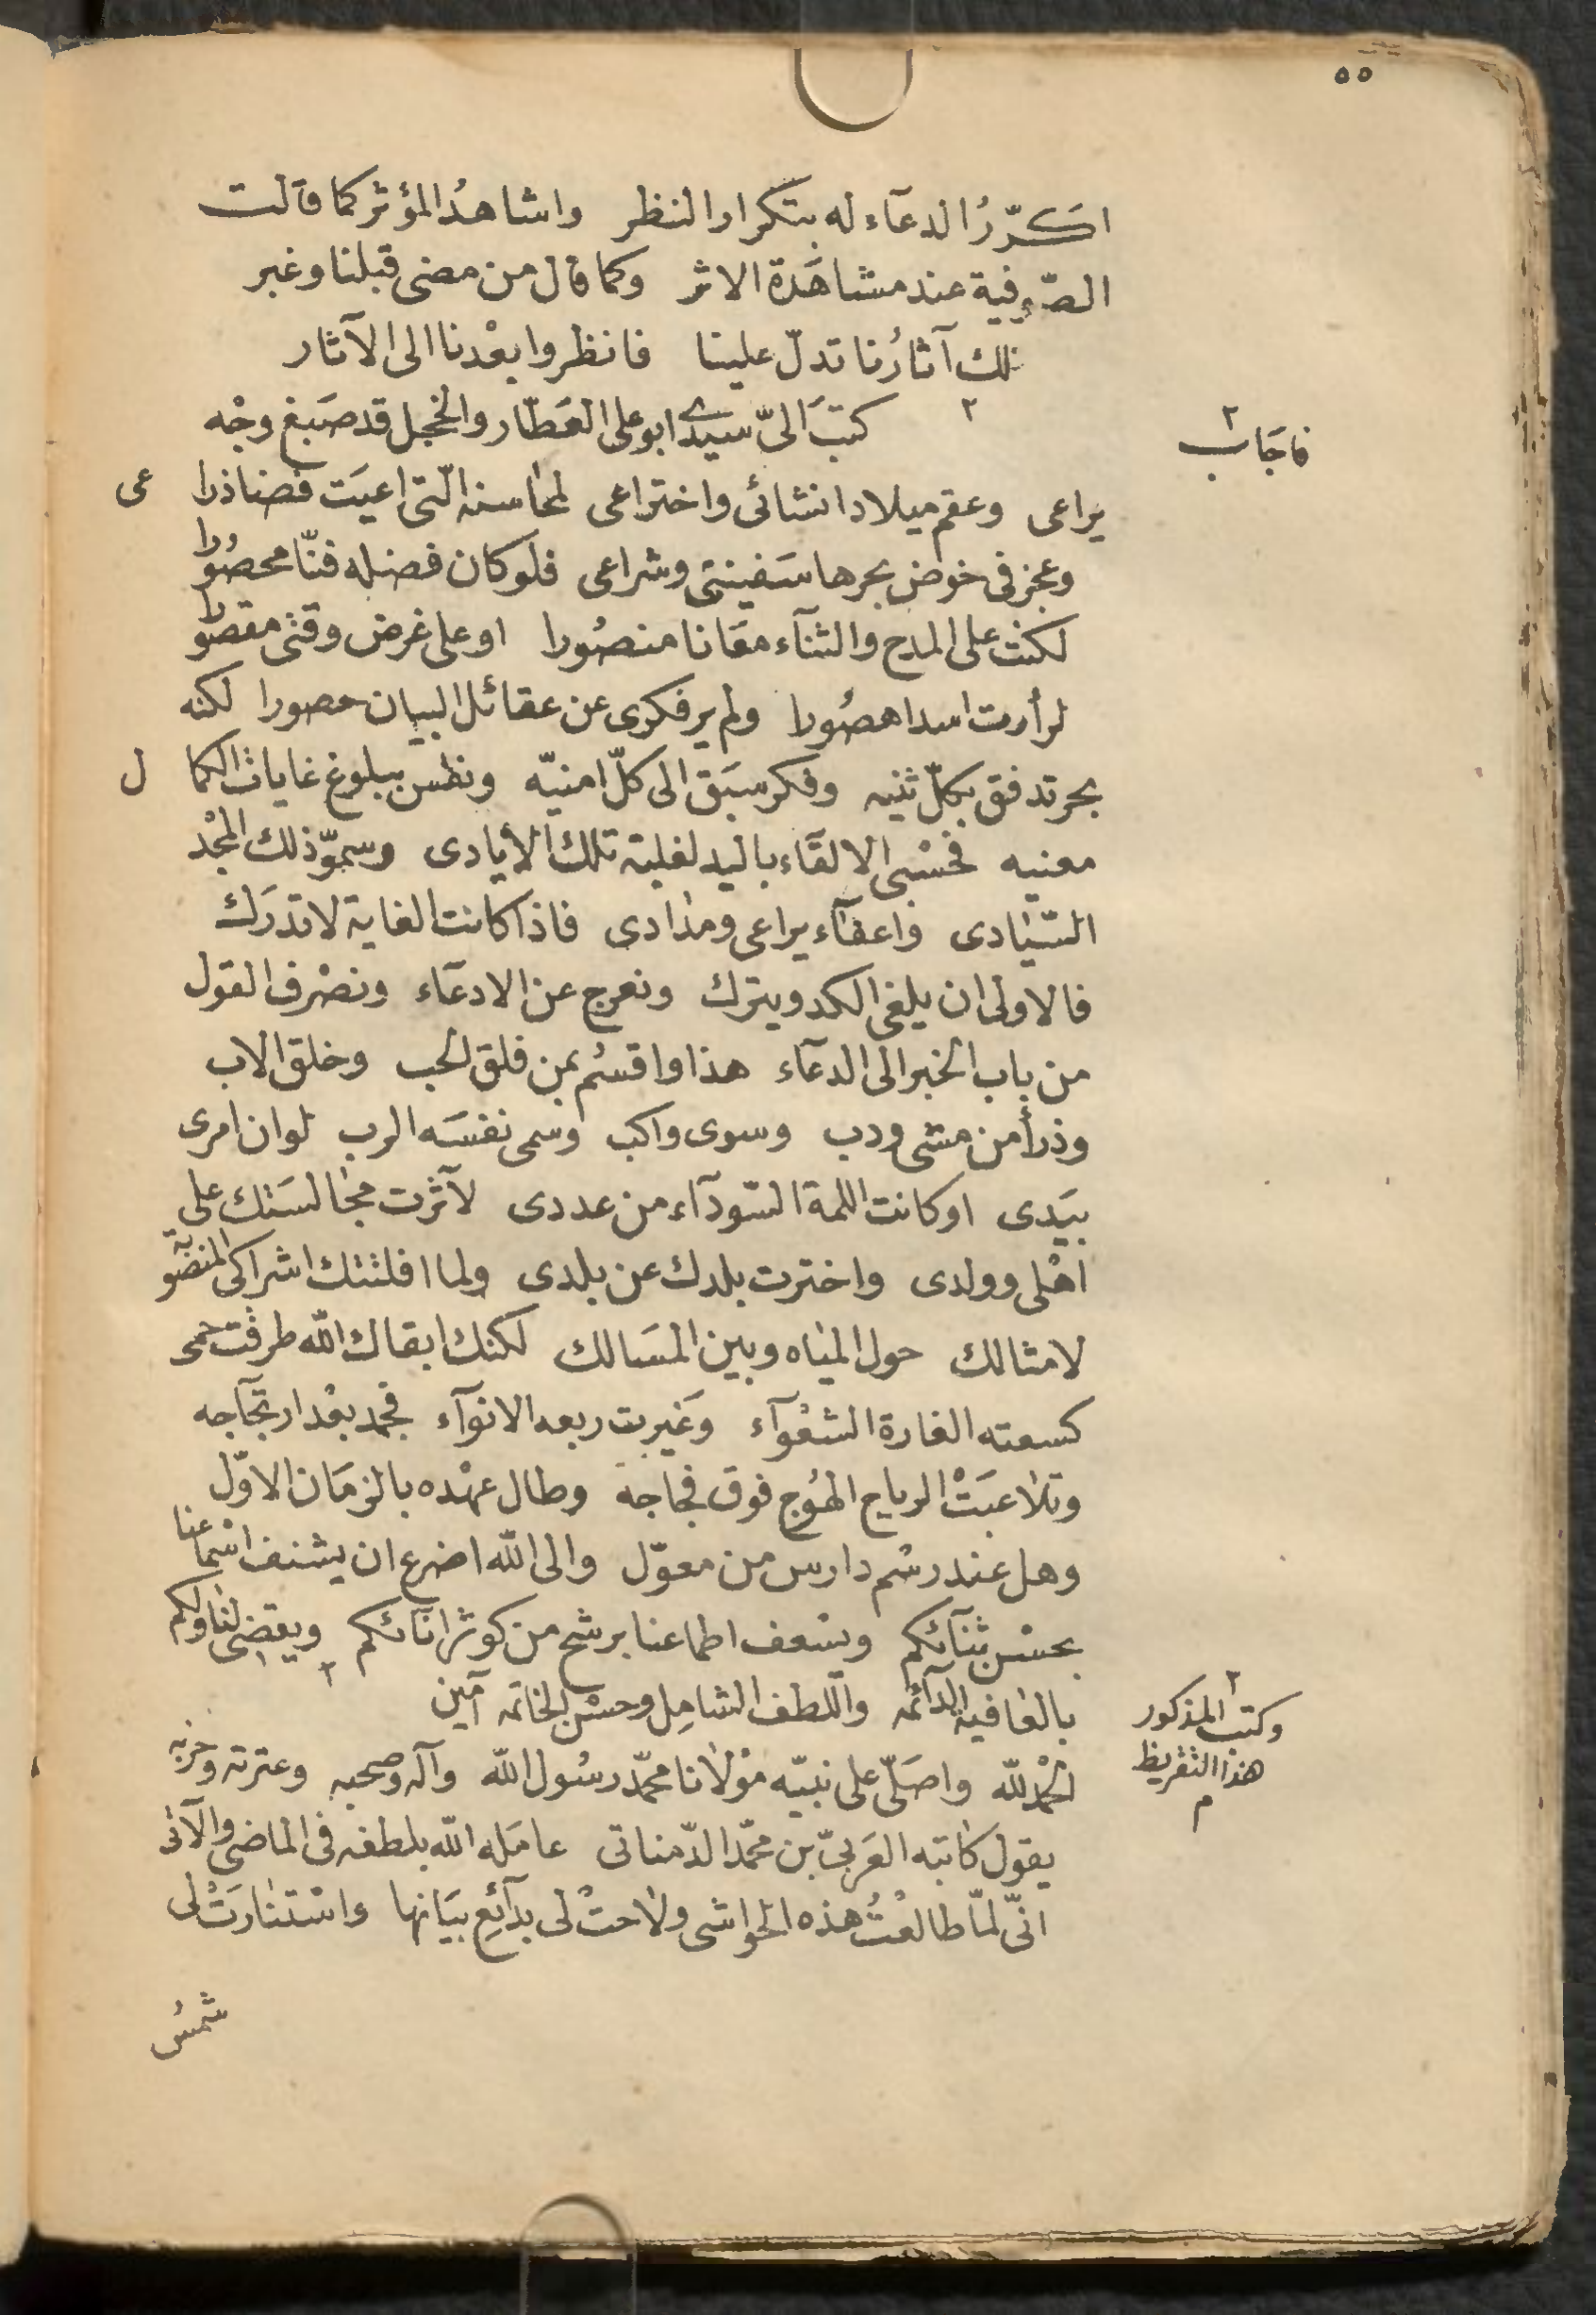 ٥٥
اكَرّرُ الدعآء له بتكرار النظر واشاهدُ المؤثر كما قآلت
الصّوفية عند مشاهَدة الاثر وكما قال من مضى قبلنا وغبر
تلك آثارُنا تدلّ علينا فانظروا بعْدنا الى الآثار
فاجَاب ٢
٢ كتبَ الىّ سيدي ابو على العَطّار والخجل قد صَبغ وجْه
يراعى وعقم ميلاد انشائى واختراعى لمحاسنه الّتى اعيَت فضنا ذراعى
وعجز فى خوض بحرها سَفينتى وشراعى فلو كان فضله فنّا محصُورا
لكنت على المدح والثنآء معَانا منصُورا او على غرض وقتى مقصورا
لزأرت اسدا هصُورا ولم ير فكرى عن عقائل البيان حصورا لكنه
بحر تدفق بكلّ ثنيه وفكر سبَق الى كلّ امنيّه ونفس ببلوغ غايات الكمال
معنيه فحَسْبى الالقَاء باليد لغلبة تلك الأيادى وسموّ ذلك المجْد
السّيَادى واعفآء يراعى ومدَادى فاذا كانت الغاية لا تدرَك
فالاولى ان يلغى الكد ويترك ونعرج عن الادعآء ونصْرف القول
من باب الخبر الى الدعآء هذا واقسُم بمن فلق الحب وخلق الاب
وذرأ من مشى ودب وسوى واكب وسمى نفسَه الرب لو ان امرى
بيَدى او كانت اللمة السّودآء من عددى لآثرت مجَالسَتك على
اهْلى وولدى واخترت بلدك عن بلدى ولما افلتتك اشراكى المنصوبة
لامثالك حول الميَاه وبين المسَالك لكنك ابقاك الله طرقت حمى
كسعته الغارة الشعْوآء وغَيرت ربعه الانوآء فجمد بعْد ارتجآجه
وتلاعبَتْ الرياح الهُوج فوق فجاجه وطال عهْده بالزمَان الاوّل
وهل عند رسْم دارس من معوّل والى الله اضرع ان يشنف اسْماعنا
بحسْن ثنآئكم ويسْعف اطماعنا برشح من كوثر انآئكم ويقضى لنا ولكم
بالعَافية الدآئمه واللطف الشامِل وحسْن الخاتمه آمين ٢
٢ وكتب المذكور
هذا التقريظ
م
الحمْد لله واصَلّى على نبيّه موْلانا محمّد رسُول الله وآله وصحبه وعترته وحزبه
يقول كَاتبه العَربىّ بن محمّد الدّمناتى عامَله الله بلطفه فى الماضى والآتى
انّى لمّا طالعْتُ هذه الحواشى ولاحتْ لى بدآئع بيَانها واسْتنَارَتْ لى
شمسُ